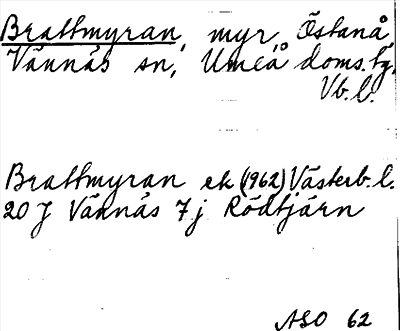 Brattmyran, myr, Östanå,
Vännäs sn, Umeå doms.tg,
Vb.l.
Brattmyran ek (1962) Västerb.l.
20 J Vännäs 7 j Rödtjärn
ASO 62